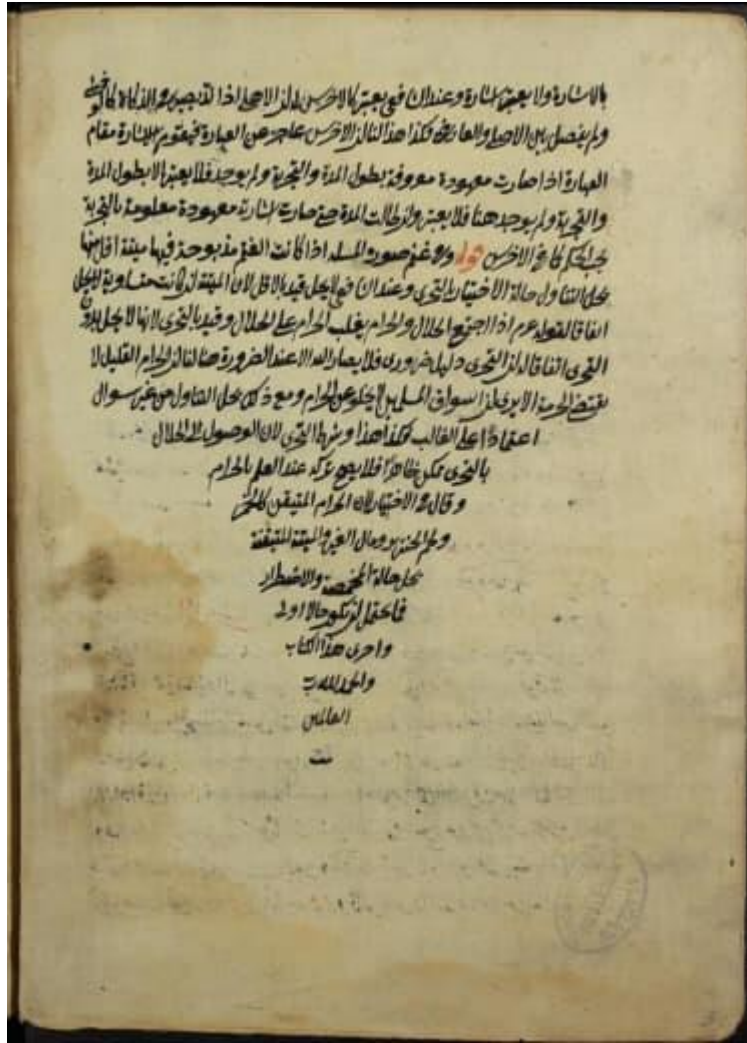 بالاشارة ولا يعتبر اشارة وعند الشافعي يعتبر كالاخرس لان الاصلي اذا لم يجب والذكاة كالوحشي
ولم يفصل بين الاصلي والعارض فكذا هذا لنا ان الاخرس عاجز عن العبارة فيقوم الاشارة مقام
العبارة اذا صارت معهودة معروفة بطول المدة والتجربة ولم يوجد فلا يعتبر الا بطول المدة
والتجربة ولم يوجد هنا فلا يعتبر ولو طالت المدة حتى صارت اشارة معهودة معلومة بالتجربة
يجب الحكم كما في الاخرس قوله وفي غنم صورة المسئلة اذا كانت الغنم مذبوحة فيها ميتة اقل منها
يحل التناول حالة الاختيار بالتحري وعند الشافعي لا يحل قيد بالاقل لان الميتة ان كانت متساوية لا يحل
اتفاقا لقوله عم اذا اجتمع الحلال والحرام يغلب الحرام على الحلال وقيد بالتحري لانها لا يحل بدون
التحري اتفاقا له ان التحري دليل ضروري فلا يصار اليه الا عند الضرورة هنا لنا ان الحرام القليل لا
يقتضي الحرمة الا يرى ان اسواق المسلمين لا يخلو عن الحرام ومع ذلك يحل التناول من غير سوال
اعتمادا على الغالب فكذا هذا وشرط التحري لان الوصول الى الحلال
بالتحري ممكن ظاهرا فلا يجوز تركه عند العلم بالحرام
وقال في الاختيار لان الحرام المتيقن كالخمر
ولحم الخنزير ومال الغير والميتة المتيقنة
يحل حالة المخمصة والاضطرار
فما احتمل ان يكون حالا اولى
واحرى هذا الكتاب
والحمد لله رب
العالمين
تمت